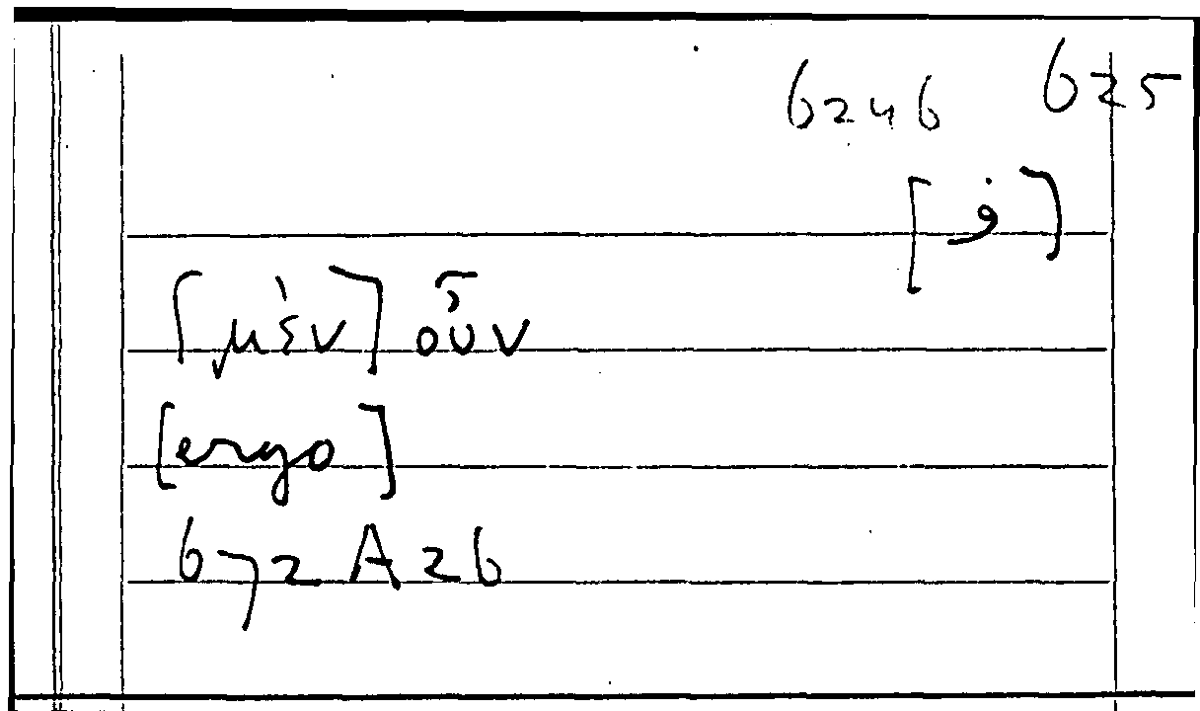 6246 625
[ف]
[μὲν] οὖν
[ergo]
672 A 26